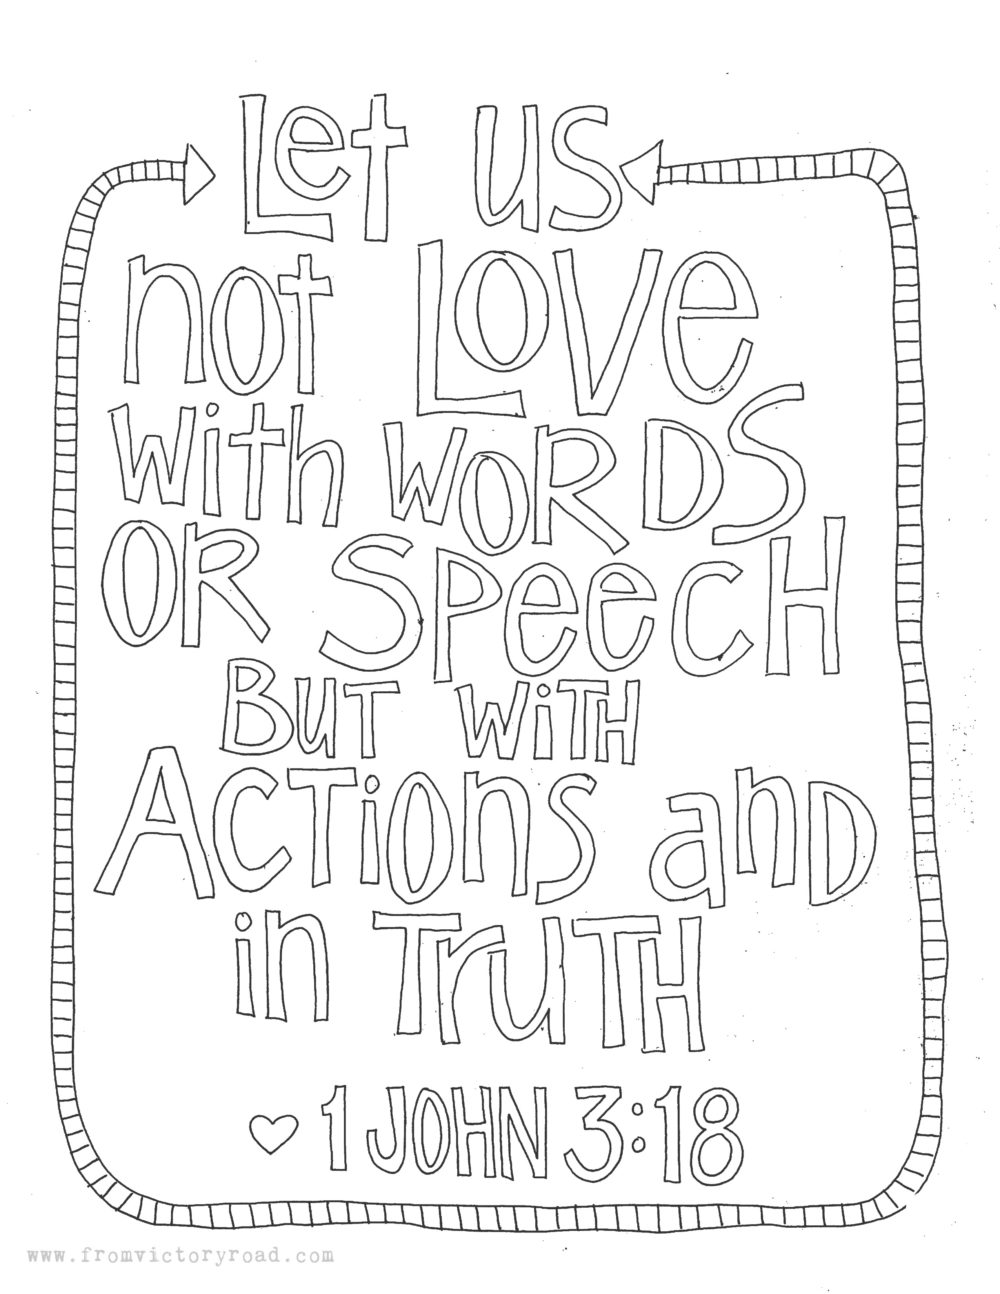 Let us
not Love
with WORDS
OR SPeecH
BUT WiTH
ACTionS and
in TrUTH
♥ 1 JOHN 3:18
www.fromvictoryroad.com